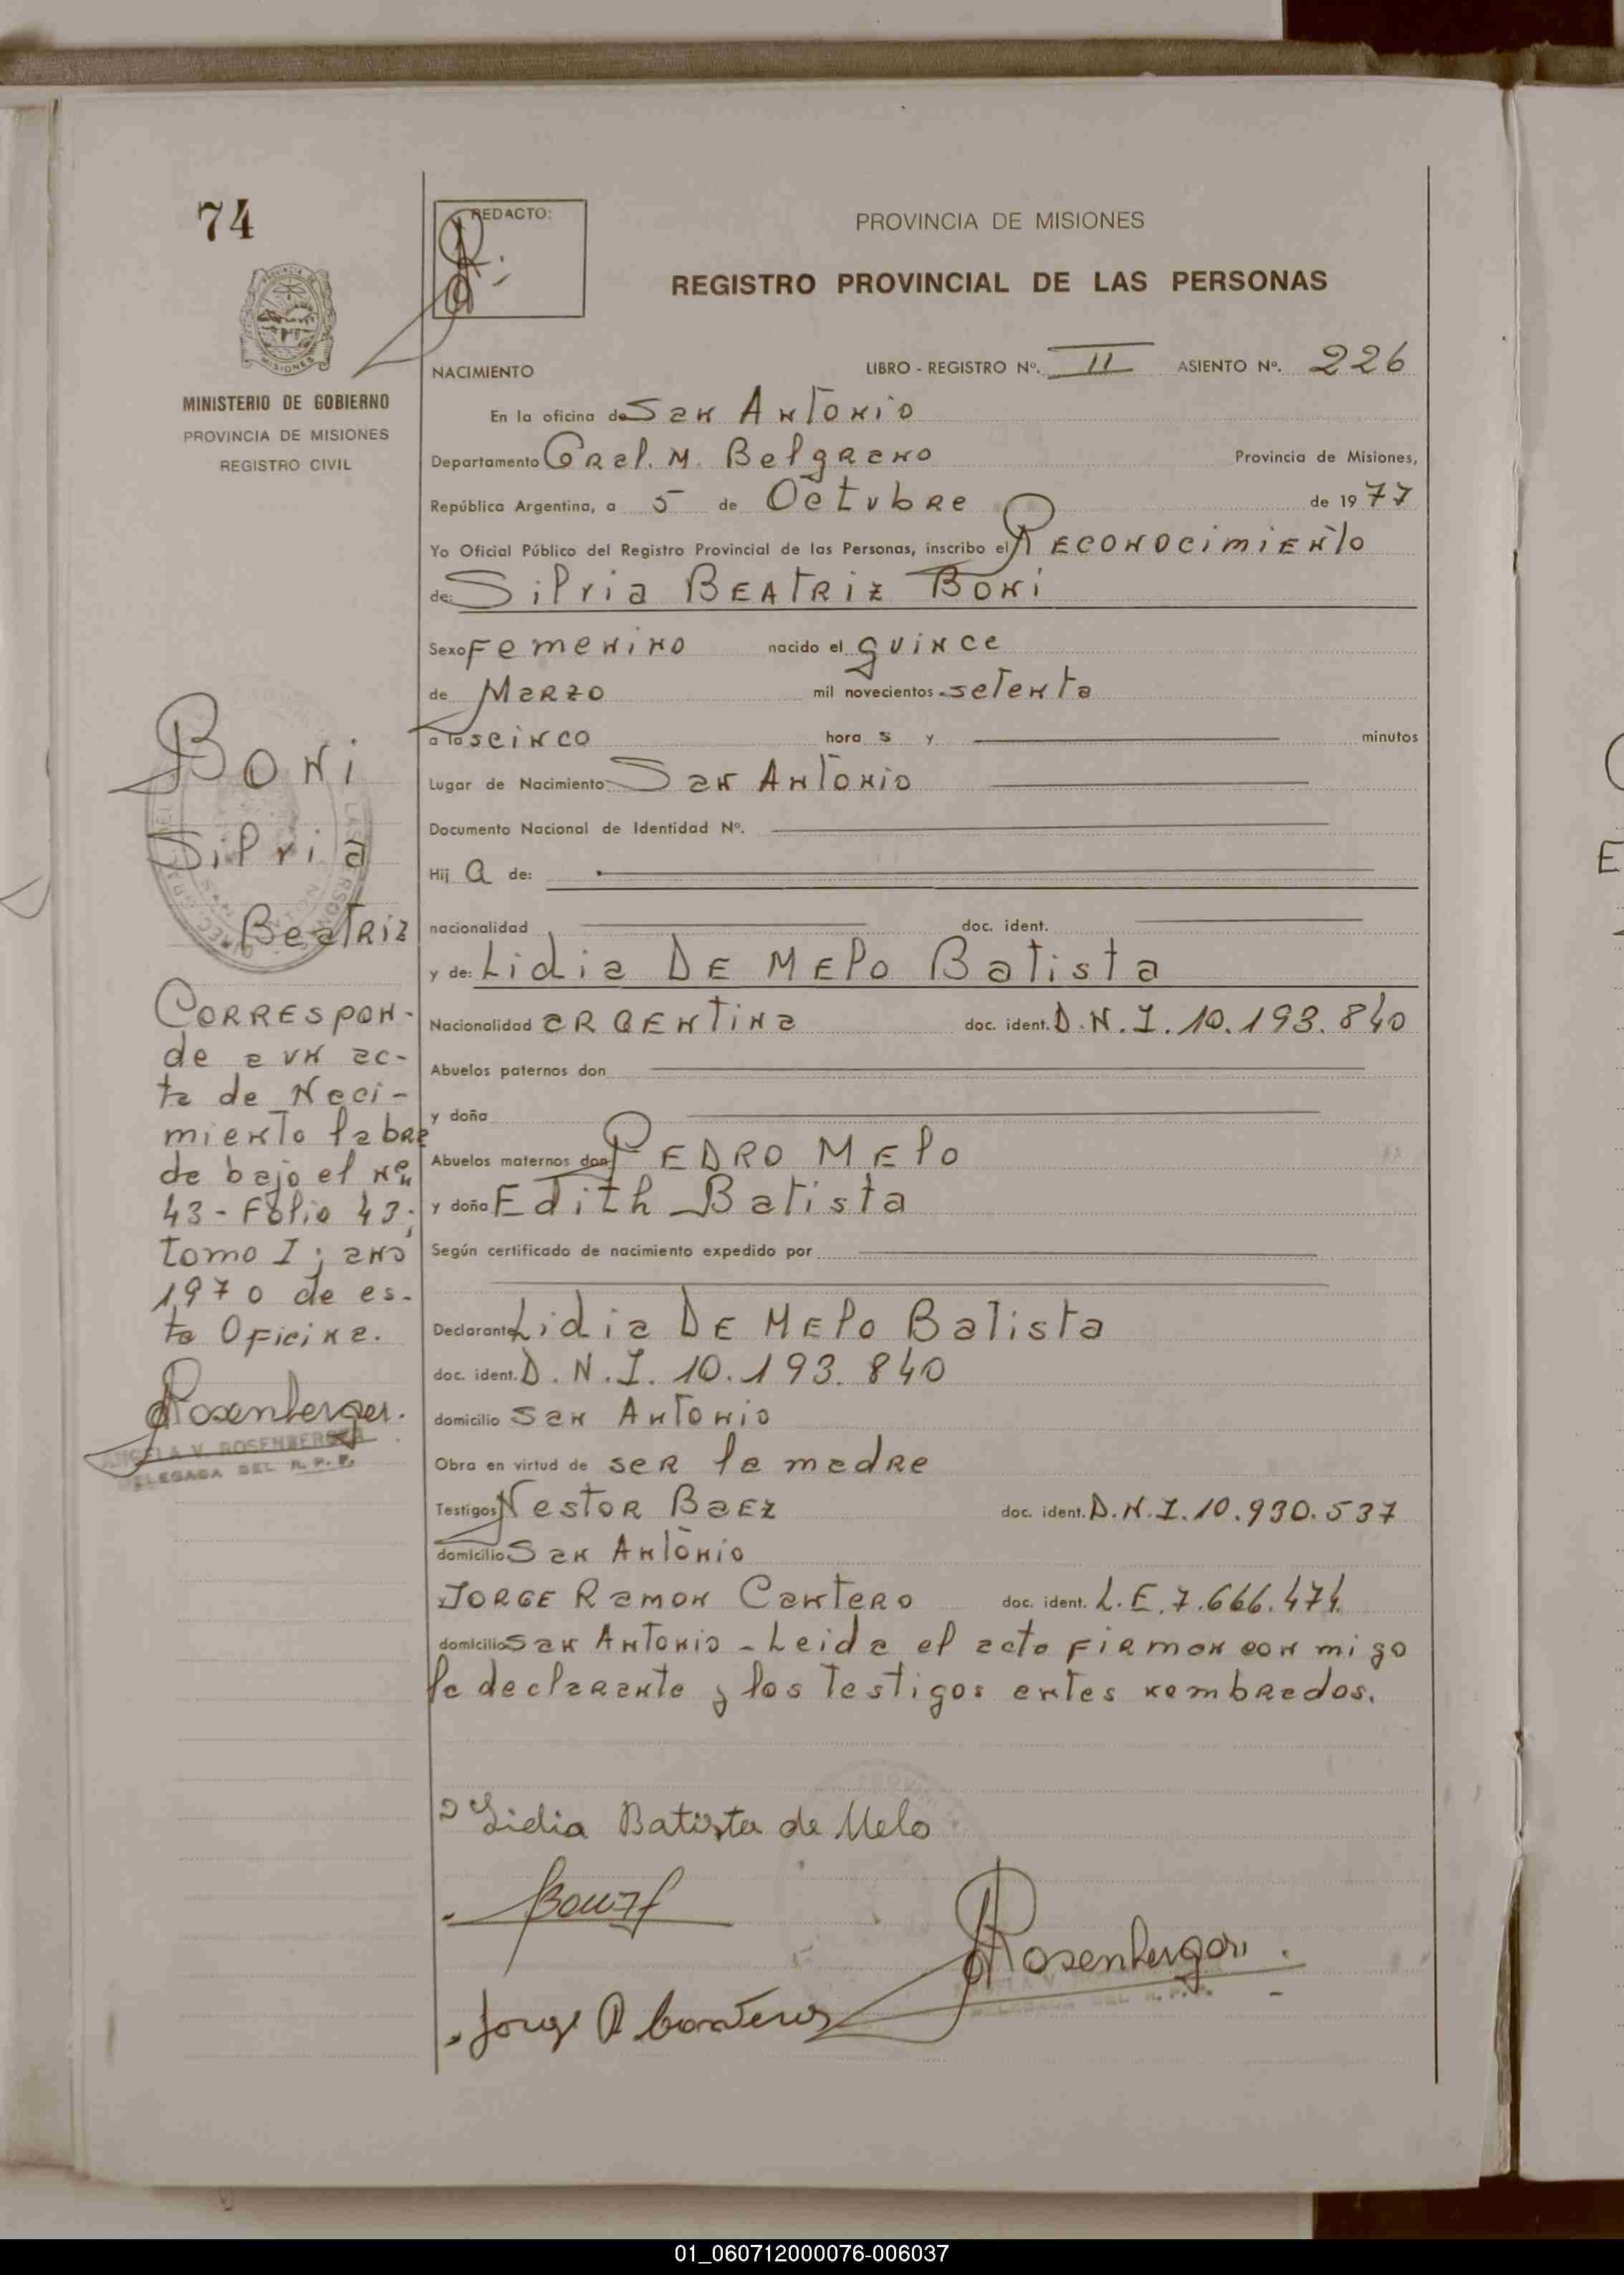 74
REDACTO:
PROVINCIA DE MISIONES
REGISTRO PROVINCIAL DE LAS PERSONAS
MINISTERIO DE GOBIERNO
PROVINCIA DE MISIONES
REGISTRO CIVIL
NACIMIENTO LIBRO - REGISTRO Nº. II ASIENTO Nº. 226
En la oficina de San Antonio
Departamento Gral. M. Belgrano Provincia de Misiones,
República Argentina, a 5 de Octubre de 1977
Yo Oficial Público del Registro Provincial de las Personas, inscribo el Reconocimiento
de: Silvia BEATRIZ BONI
Sexo Femenino nacido el quince
de Marzo mil novecientos setenta
a las cinco hora s y minutos
Lugar de Nacimiento San Antonio
Documento Nacional de Identidad Nº.
Hij a de:
nacionalidad doc. ident.
y de: Lidia DE MELO Batista
Nacionalidad argentina doc. ident. D.N.I. 10.193.840
Abuelos paternos don
y doña
Abuelos maternos don PEDRO MElo
y doña Edith Batista
Según certificado de nacimiento expedido por
Declarante Lidia DE MElo Batista
doc. ident. D.N.I. 10.193.840
domicilio San Antonio
Obra en virtud de ser la madre
Testigos Nestor Baez doc. ident. D.N.I. 10.930.537
domicilio San Antonio
JORGE Ramon Cantero doc. ident. L.E. 7.666.474
domicilio San Antonio - Leida el acto firman con migo
la declarante y los testigos antes nombrados.
Boni
Silvia
Beatriz
Correspon-
de a un ac-
ta de Naci-
miento labra
da bajo el nº
43 - Folio 43;
tomo I; ano
1970 de es-
ta Oficina.
Rosenberger.
ANGELA V. ROSENBERGER
DELEGADA DEL R.P.P.
Lidia Batista de Melo
Rosenberger.
Jorge R Cantero
DELEGADA DEL R.P.P.
01_060712000076-006037